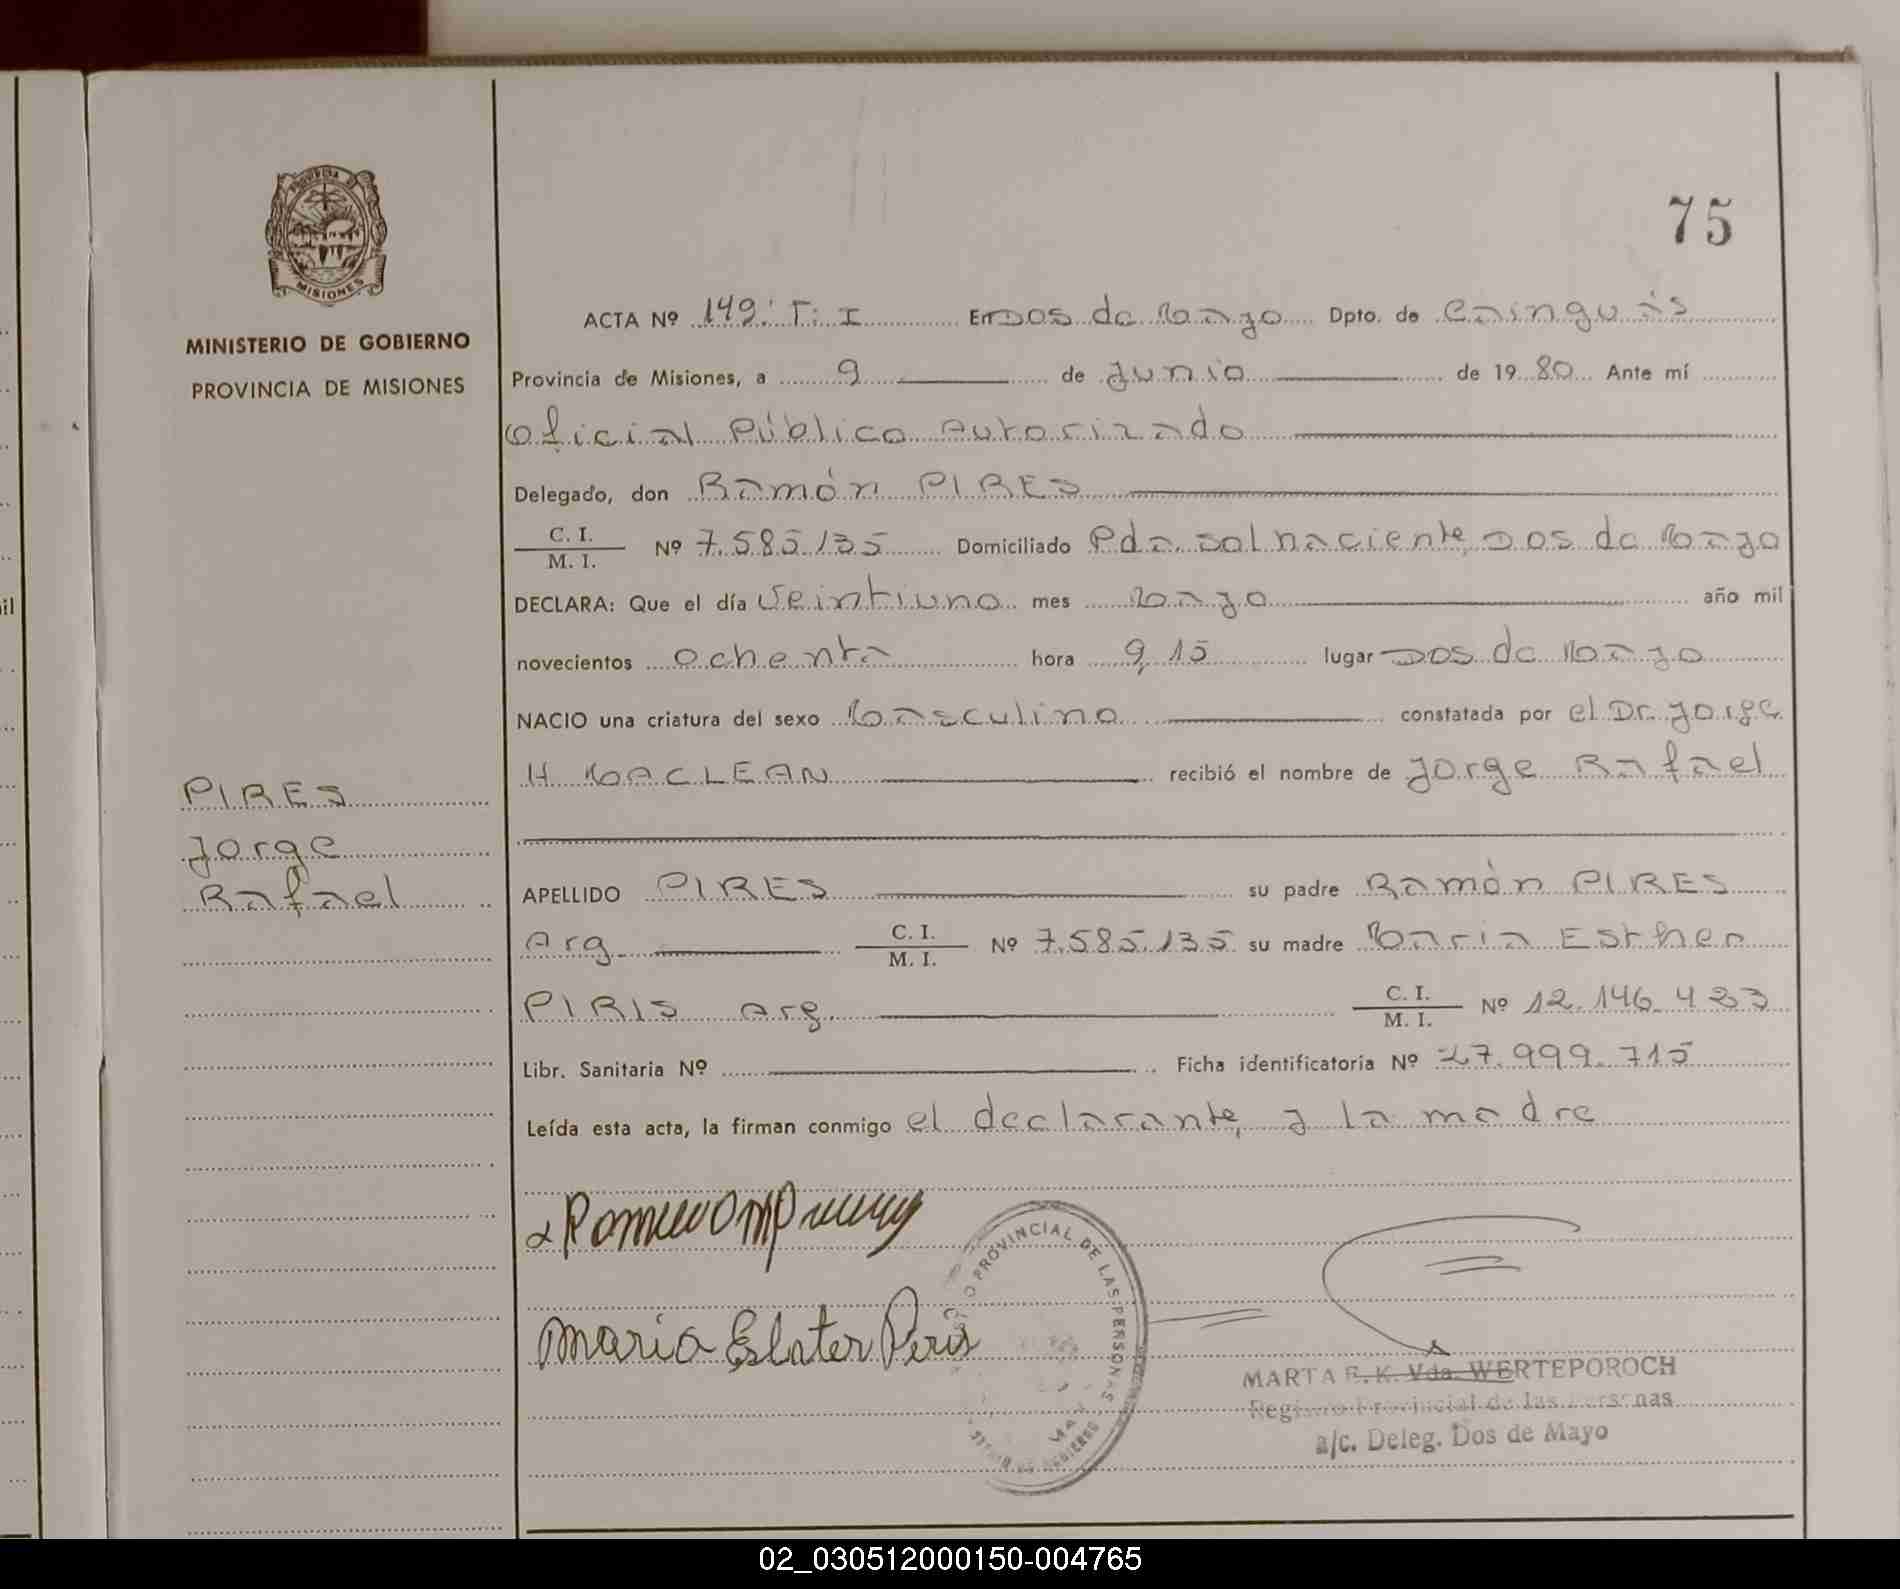 75
PROVINCIA DE
MISIONES
MINISTERIO DE GOBIERNO
PROVINCIA DE MISIONES
ACTA Nº 149. T: I En Dos de Mayo Dpto. de Cainguás
Provincia de Misiones, a 9 de Junio de 1980 Ante mí
Oficial Público Autorizado
Delegado, don Ramón PIRES
C. I.
M. I. Nº 7.585.135 Domiciliado Pda. Sol naciente, Dos de Mayo
DECLARA: Que el día Veintiuno mes Mayo año mil
novecientos ochenta hora 9,15 lugar Dos de Mayo
NACIO una criatura del sexo Masculino constatada por el Dr. Jorge
H MACLEAN recibió el nombre de Jorge Rafael
PIRES
Jorge
Rafael
APELLIDO PIRES su padre Ramón PIRES
Arg. C. I.
M. I. Nº 7.585.135 su madre Maria Esther
PIRIS Arg. C. I.
M. I. Nº 12.146.423
Libr. Sanitaria Nº Ficha identificatoria Nº 27.999.715
Leída esta acta, la firman conmigo el declarante, y la madre
Maria Eslater Peris
PROVINCIAL DE LAS PERSONAS
MARTA E. K. Vda. WERTEPOROCH
Registro Provincial de las Personas
a/c. Deleg. Dos de Mayo
02_030512000150-004765